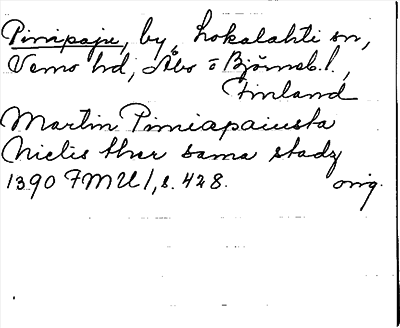 Pinipaju, by, Lokalahti sn,
Vemo hd, Åbo o Björneb. l.,
Finland
Martin Piniapaiusta
Nielis ther sama stadz
1390 FMU I, s. 428. orig.